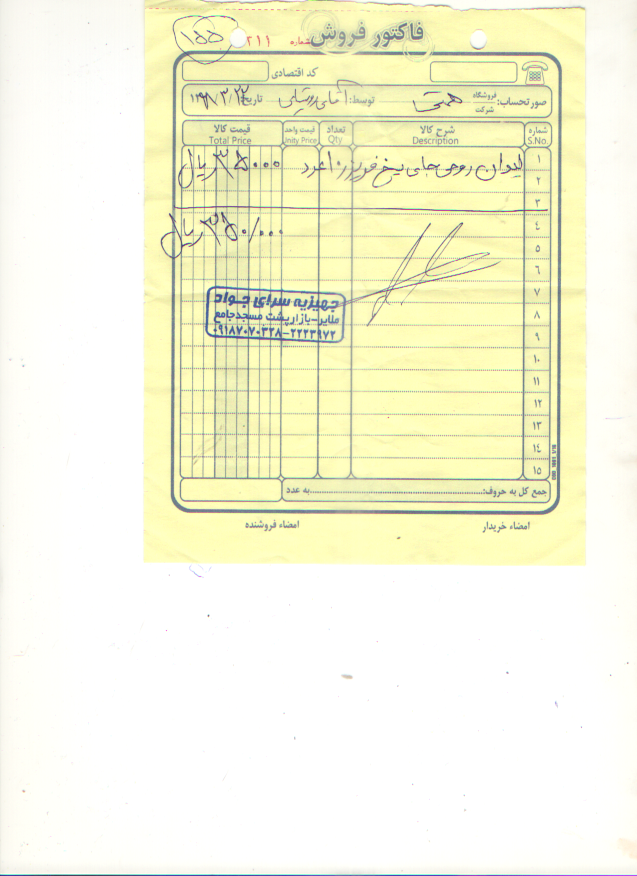 ۱۵۵
فاکتور فروش
شماره ۲۱۱
کد اقتصادی
صورتحساب: فروشگاه شرکت
توسط: آقای
تاریخ ۱۳۹۸/۳/۲۲
شماره S.No. شرح کالا Description تعداد Qty قیمت واحد Unity Price قیمت کالا Total Price
۱ لیوان روحی جای یخ فریزر ۱۰ عدد ۳۵۰۰۰۰ ریال
۲
۳
۴ ۳۵۰/۰۰۰ ریال
۵
۶
۷
۸
۹
۱۰
۱۱
۱۲
۱۳
۱۴
۱۵
جهیزیه سرای جواد
ملایر-بازار پشت مسجد جامع
۰۹۱۸۷۰۷۰۳۲۸-۲۲۲۳۹۷۲
جمع کل به حروف: به عدد
امضاء خریدار امضاء فروشنده